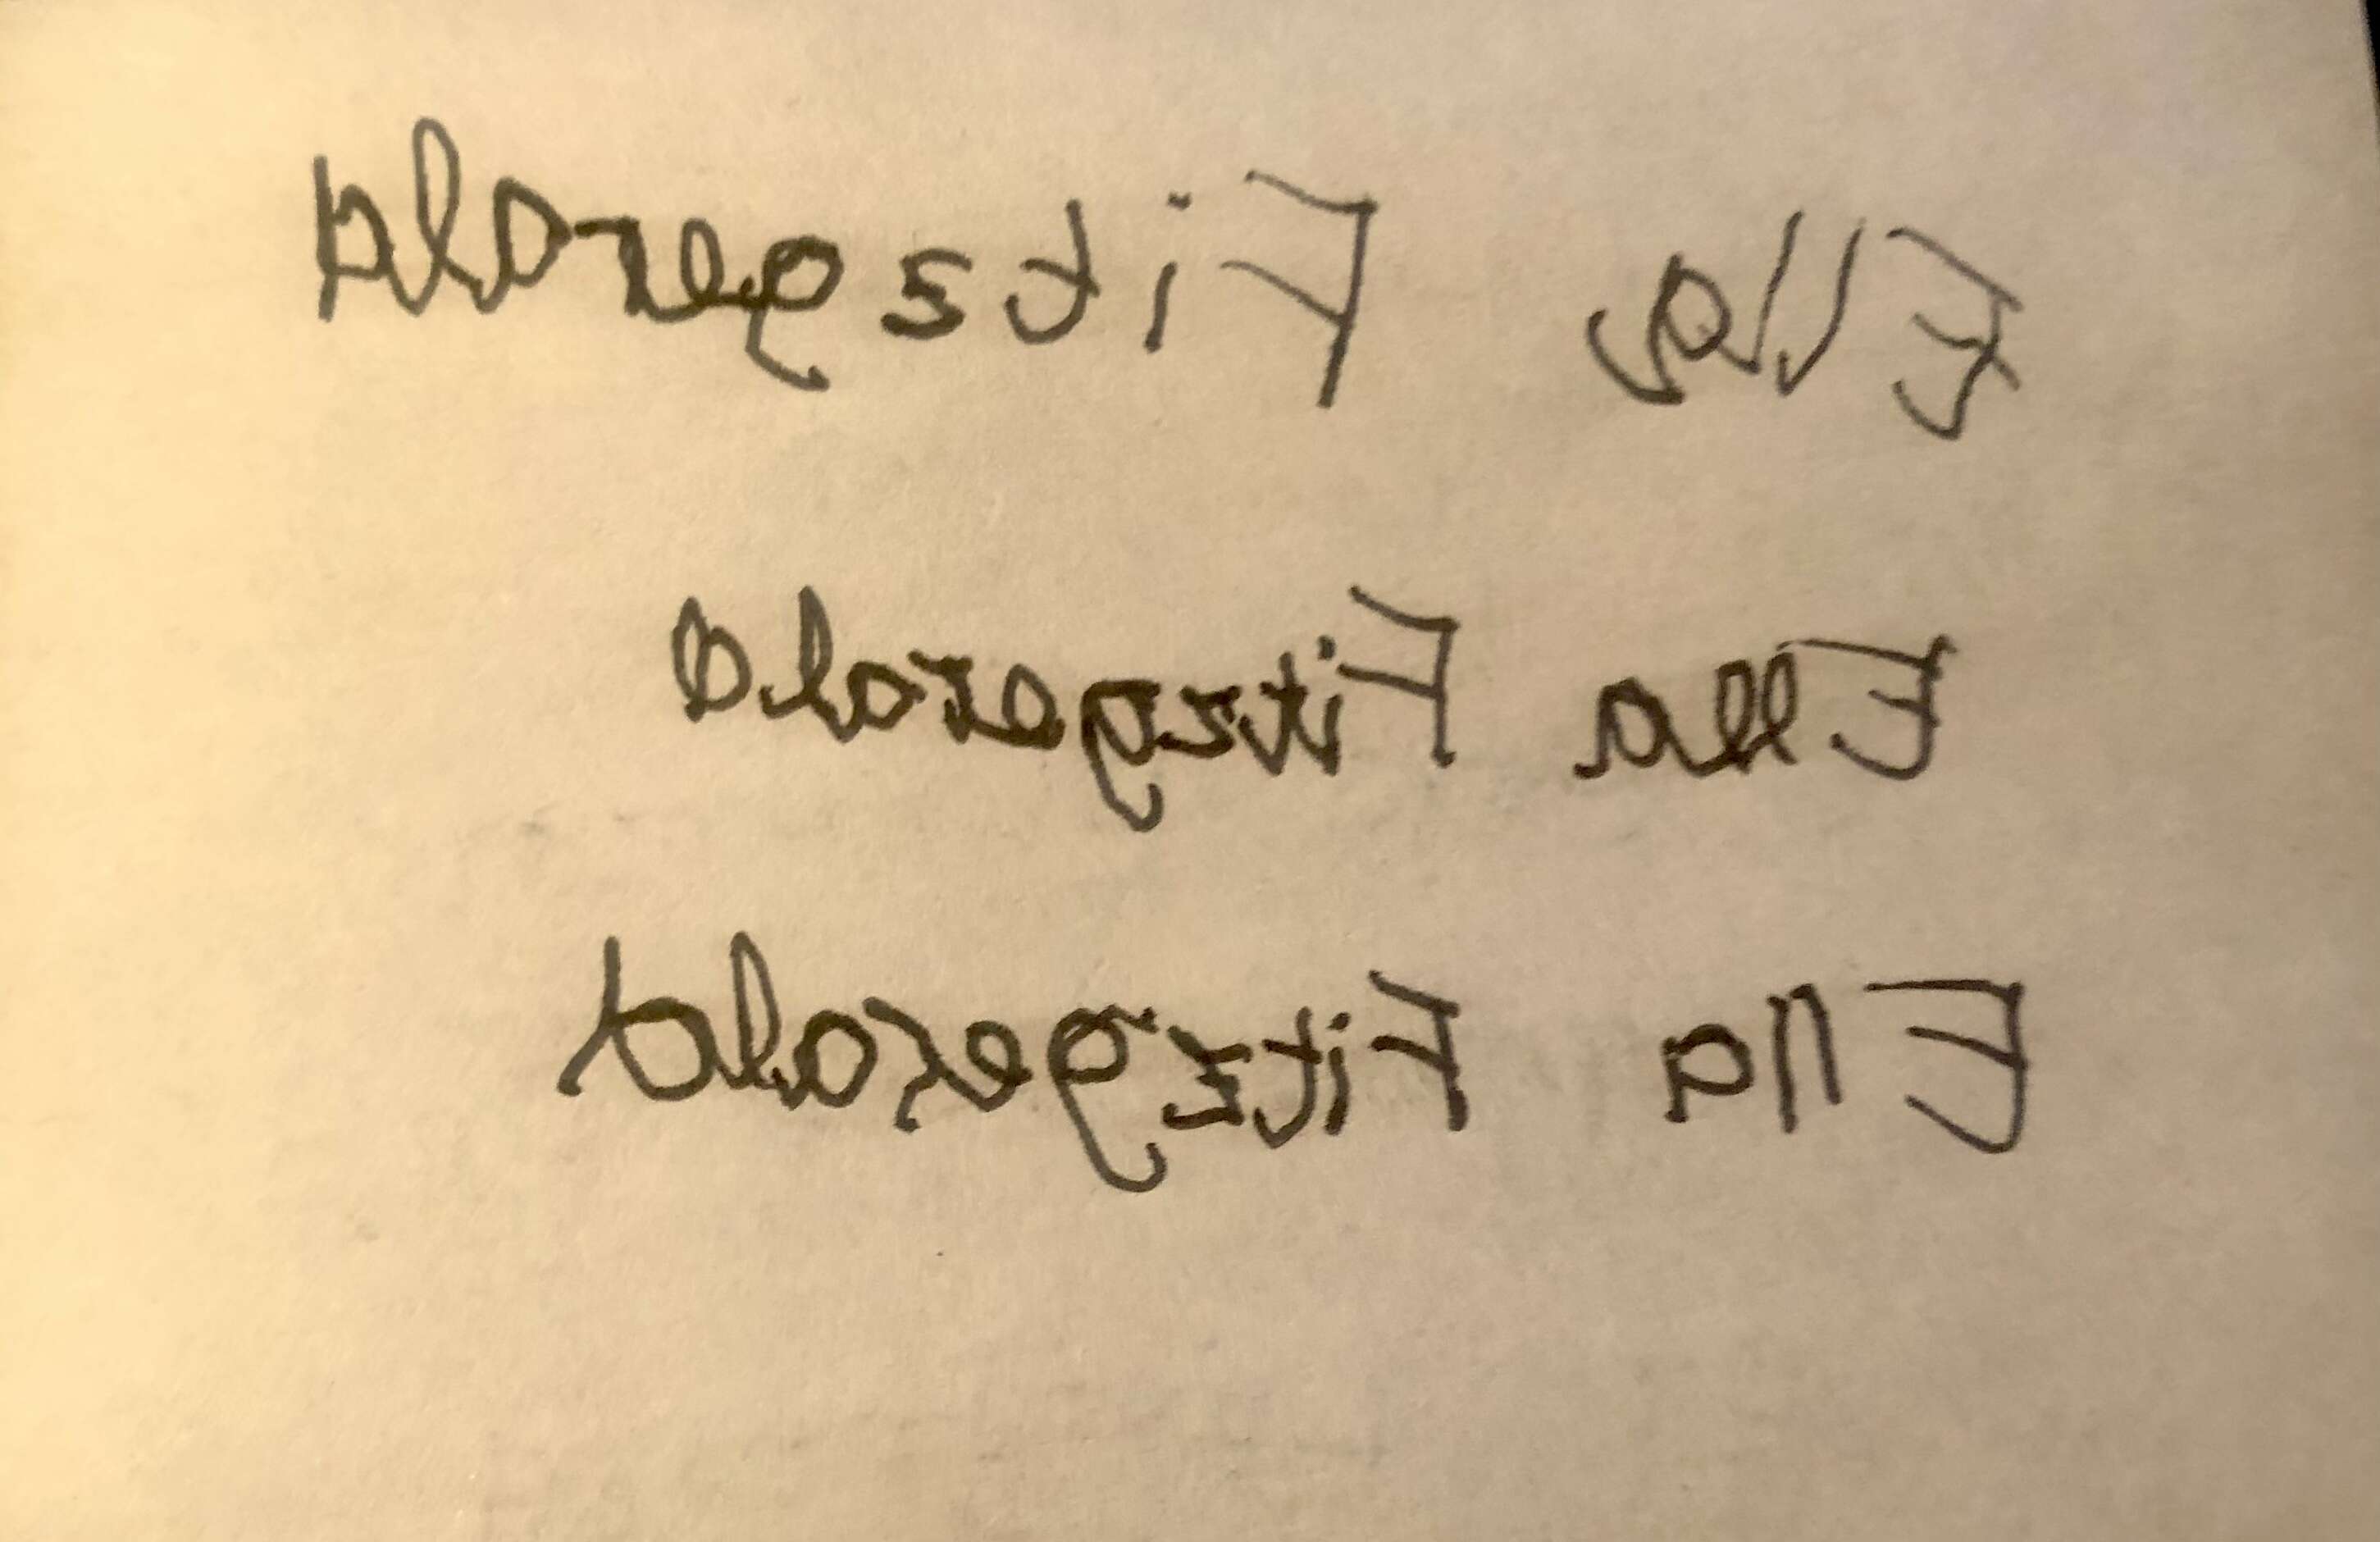 Ella Fitzgerald
Ella Fitzgerald
Ella Fitzgerald